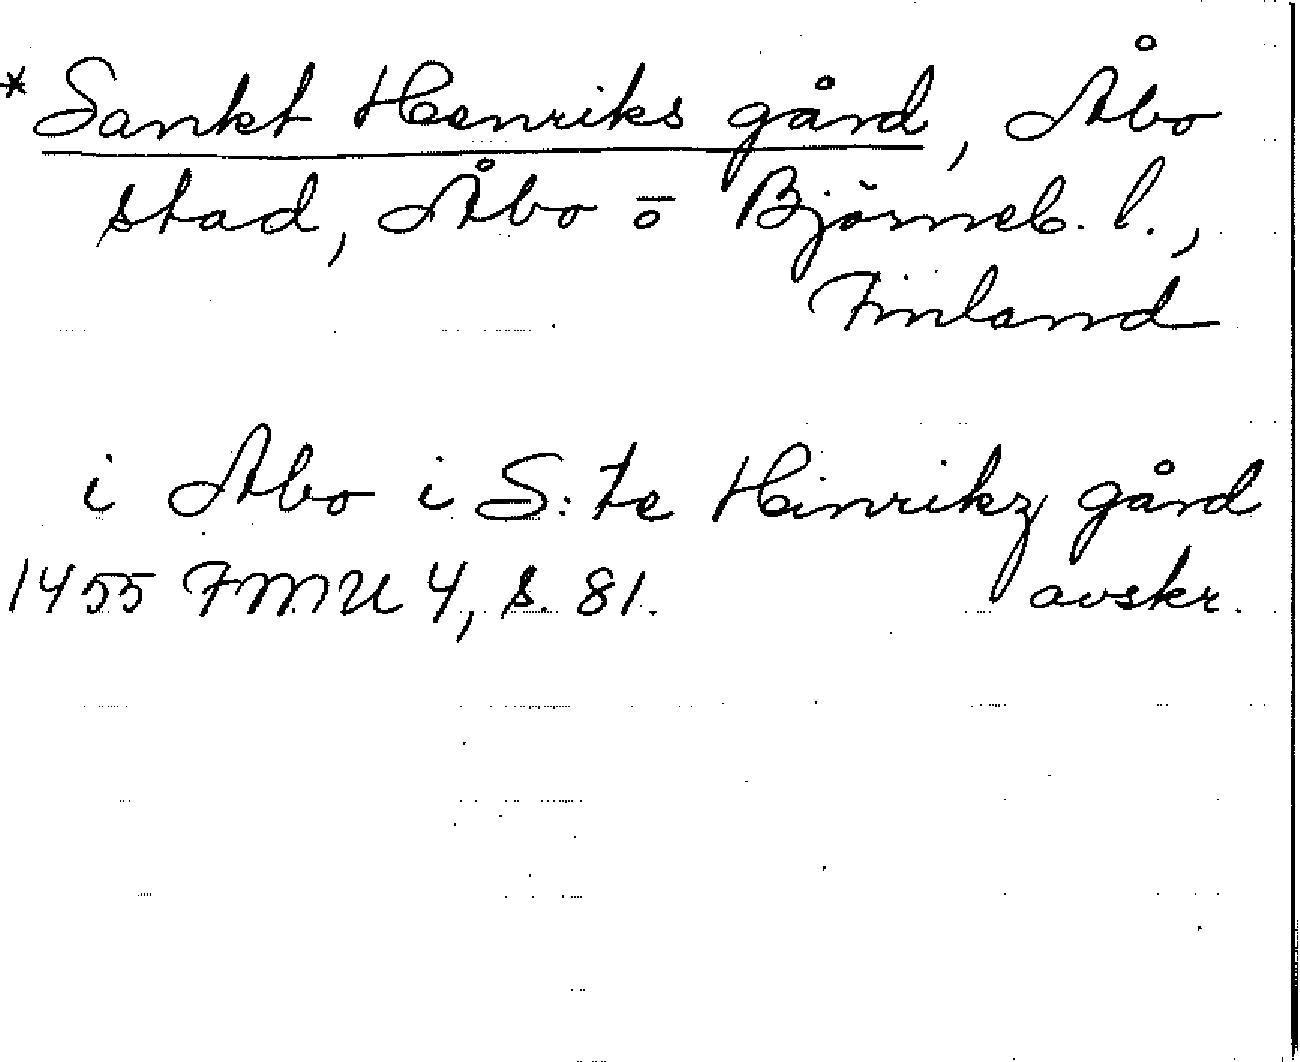 * Sankt Henriks gård, Åbo
stad, Åbo o Björneb. l.,
Finland
i Abo i S:te Hinrikz gård
1455 FMU 4, s. 81. avskr.